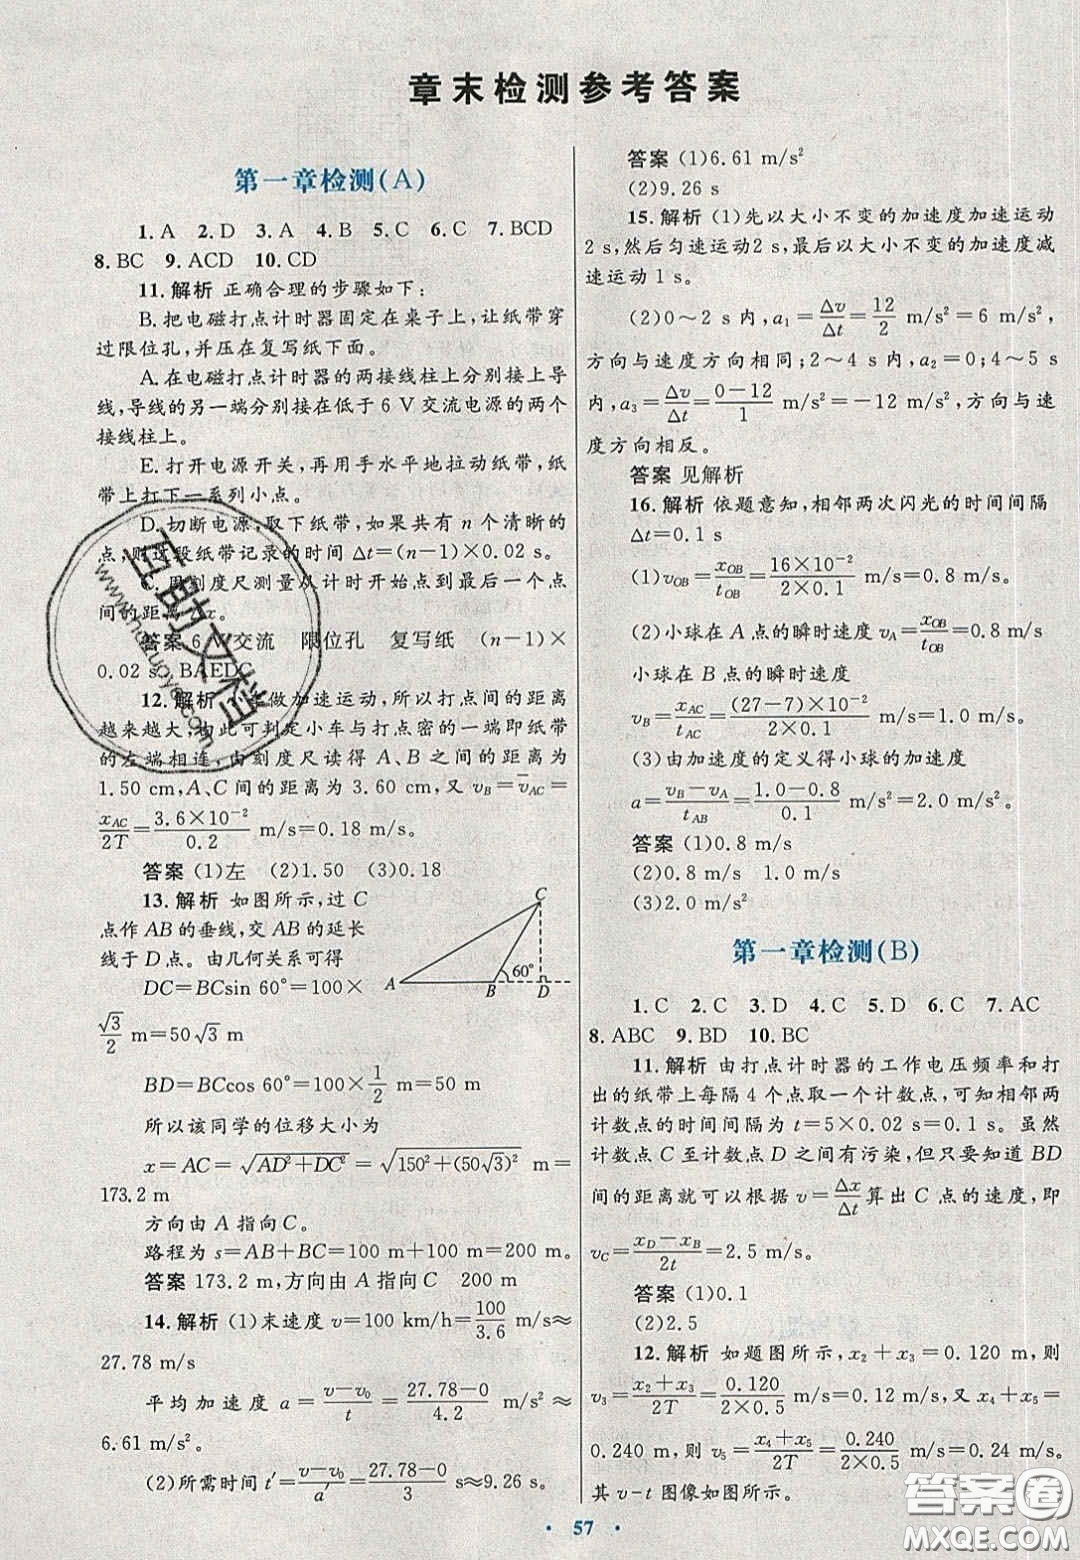 章末检测参考答案
第一章检测(A)
1. A 2. D 3. A 4. B 5. C 6. C 7. BCD
8. BC 9. ACD 10. CD
11. 解析 正确合理的步骤如下:
B. 把电磁打点计时器固定在桌子上,让纸带穿
过限位孔,并压在复写纸下面。
A. 在电磁打点计时器的两接线柱上分别接上导
线,导线的另一端分别接在低于 6 V 交流电源的两个
接线柱上。
E. 打开电源开关,再用手水平地拉动纸带,纸
带上打下一系列小点。
D. 切断电源,取下纸带,如果共有 n 个清晰的
点,则这段纸带记录的时间 Δt=(n-1)×0.02 s。
C. 用刻度尺测量从计时开始点到最后一个点
间的距离 Δx。
答案 6 V 交流 限位孔 复写纸 (n-1)×
0.02 s BAEDC
12. 解析 小车做加速运动,所以打点间的距离
越来越大,由此可判定小车与打点密的一端即纸带
的左端相连,由刻度尺读得 A、B 之间的距离为
1.50 cm,A、C 间的距离为 3.60 cm,又 v_B=v̄_AC=
x_AC/2T=3.6×10⁻²/0.2 m/s=0.18 m/s。
答案 (1)左 (2)1.50 (3)0.18
13. 解析 如图所示,过 C
点作 AB 的垂线,交 AB 的延长
线于 D 点。由几何关系可得
DC=BCsin 60°=100×
√3/2 m=50√3 m
C
A B 60° D
BD=BCcos 60°=100×1/2 m=50 m
所以该同学的位移大小为
x=AC=√(AD²+DC²)=√(150²+(50√3)²) m=
173.2 m
方向由 A 指向 C。
路程为 s=AB+BC=100 m+100 m=200 m。
答案 173.2 m,方向由 A 指向 C 200 m
14. 解析 (1)末速度 v=100 km/h=100/3.6 m/s≈
27.78 m/s
平均加速度 a=(v-v₀)/t=(27.78-0)/4.2 m/s²≈
6.61 m/s²。
(2)所需时间 t′=(v-v₀)/a′=(27.78-0)/3 s≈9.26 s。
答案 (1)6.61 m/s²
(2)9.26 s
15. 解析 (1)先以大小不变的加速度加速运动
2 s,然后匀速运动2 s,最后以大小不变的加速度减
速运动 1 s。
(2)0~2 s 内,a₁=Δv/Δt=12/2 m/s²=6 m/s²,
方向与速度方向相同;2~4 s 内,a₂=0;4~5 s
内,a₃=Δv/Δt=(0-12)/1 m/s²=-12 m/s²,方向与速
度方向相反。
答案 见解析
16. 解析 依题意知,相邻两次闪光的时间间隔
Δt=0.1 s
(1)v_OB=x_OB/t_OB=16×10⁻²/(2×0.1) m/s=0.8 m/s。
(2)小球在 A 点的瞬时速度 v_A=x_OB/t_OB=0.8 m/s
小球在 B 点的瞬时速度
v_B=x_AC/t_AC=(27-7)×10⁻²/(2×0.1) m/s=1.0 m/s。
(3)由加速度的定义得小球的加速度
a=(v_B-v_A)/t_AB=(1.0-0.8)/0.1 m/s²=2.0 m/s²。
答案 (1)0.8 m/s
(2)0.8 m/s 1.0 m/s
(3)2.0 m/s²
第一章检测(B)
1. C 2. C 3. D 4. C 5. D 6. C 7. AC
8. ABC 9. BD 10. BC
11. 解析 由打点计时器的工作电压频率和打
出的纸带上每隔 4 个点取一个计数点,可知相邻两
计数点的时间间隔为 t=5×0.02 s=0.1 s。虽然
计数点 C 至计数点 D 之间有污染,但只要知道 BD
间的距离就可以根据 v=Δx/Δt 算出 C 点的速度,即
v_C=(x_D-x_B)/2t=2.5 m/s。
答案 (1)0.1
(2)2.5
12. 解析 如题图所示,x₂+x₃=0.120 m,则
v₃=(x₂+x₃)/2T=0.120/(2×0.5) m/s=0.12 m/s,又 x₄+x₅=
0.240 m,则 v₅=(x₄+x₅)/2T=0.240/(2×0.5) m/s=0.24 m/s。
其 v-t 图像如图所示。
· 57 ·
互助文档
www.huzuoye.com
答案圈
MXQE.COM